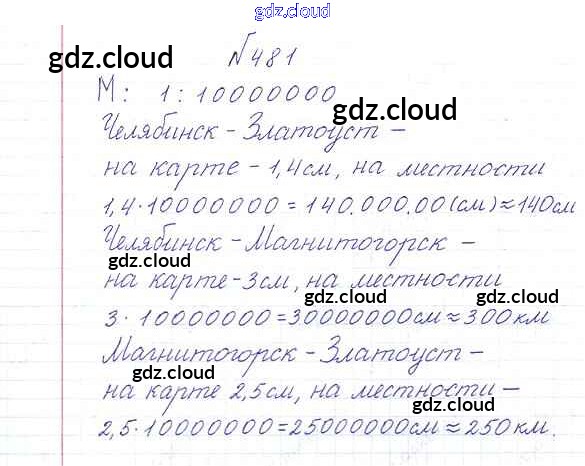 gdz.cloud
gdz.cloud gdz.cloud
№481
М: 1:10000000
gdz.cloud
Челябинск - Златоуст -
на карте - 1,4см, на местности
gdz.cloud gdz.cloud
1,4·10000000 = 140.000.00(см)≈140см
Челябинск - Магнитогорск -
gdz.cloud gdz.cloud
на карте - 3см, на местности
gdz.cloud gdz.cloud
3·10000000=30000000см≈300км
Магнитогорск - Златоуст -
gdz.cloud gdz.cloud
на карте 2,5см, на местности -
2,5·10000000=25000000см≈250км.
gdz.cloud